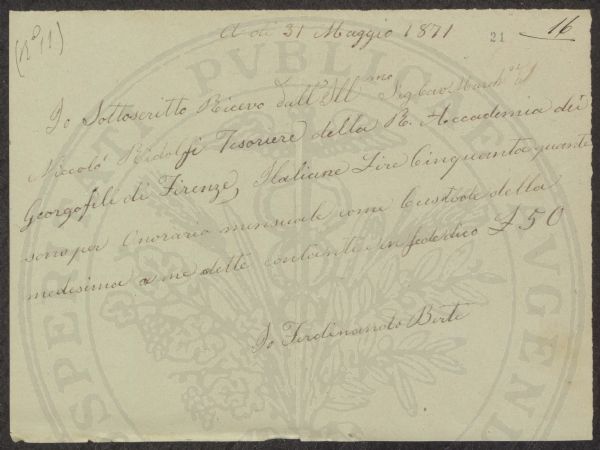 (N° 11)
A dì 31 Maggio 1871
21
16
Io Sottoscritto Ricevo dall'Ill.mo Sig Cav. March.se
Niccolò Ridolfi Tesoriere della R. Accademia dei
Georgofili di Firenze, Italiane Lire Cinquanta, quante
sono per Onorario mensuale come Custode della
medesima a me dette contante in fede dico £ 50
Io Ferdinando Berti
PUBLICAE
PROSPERITATI
AUGENDAE